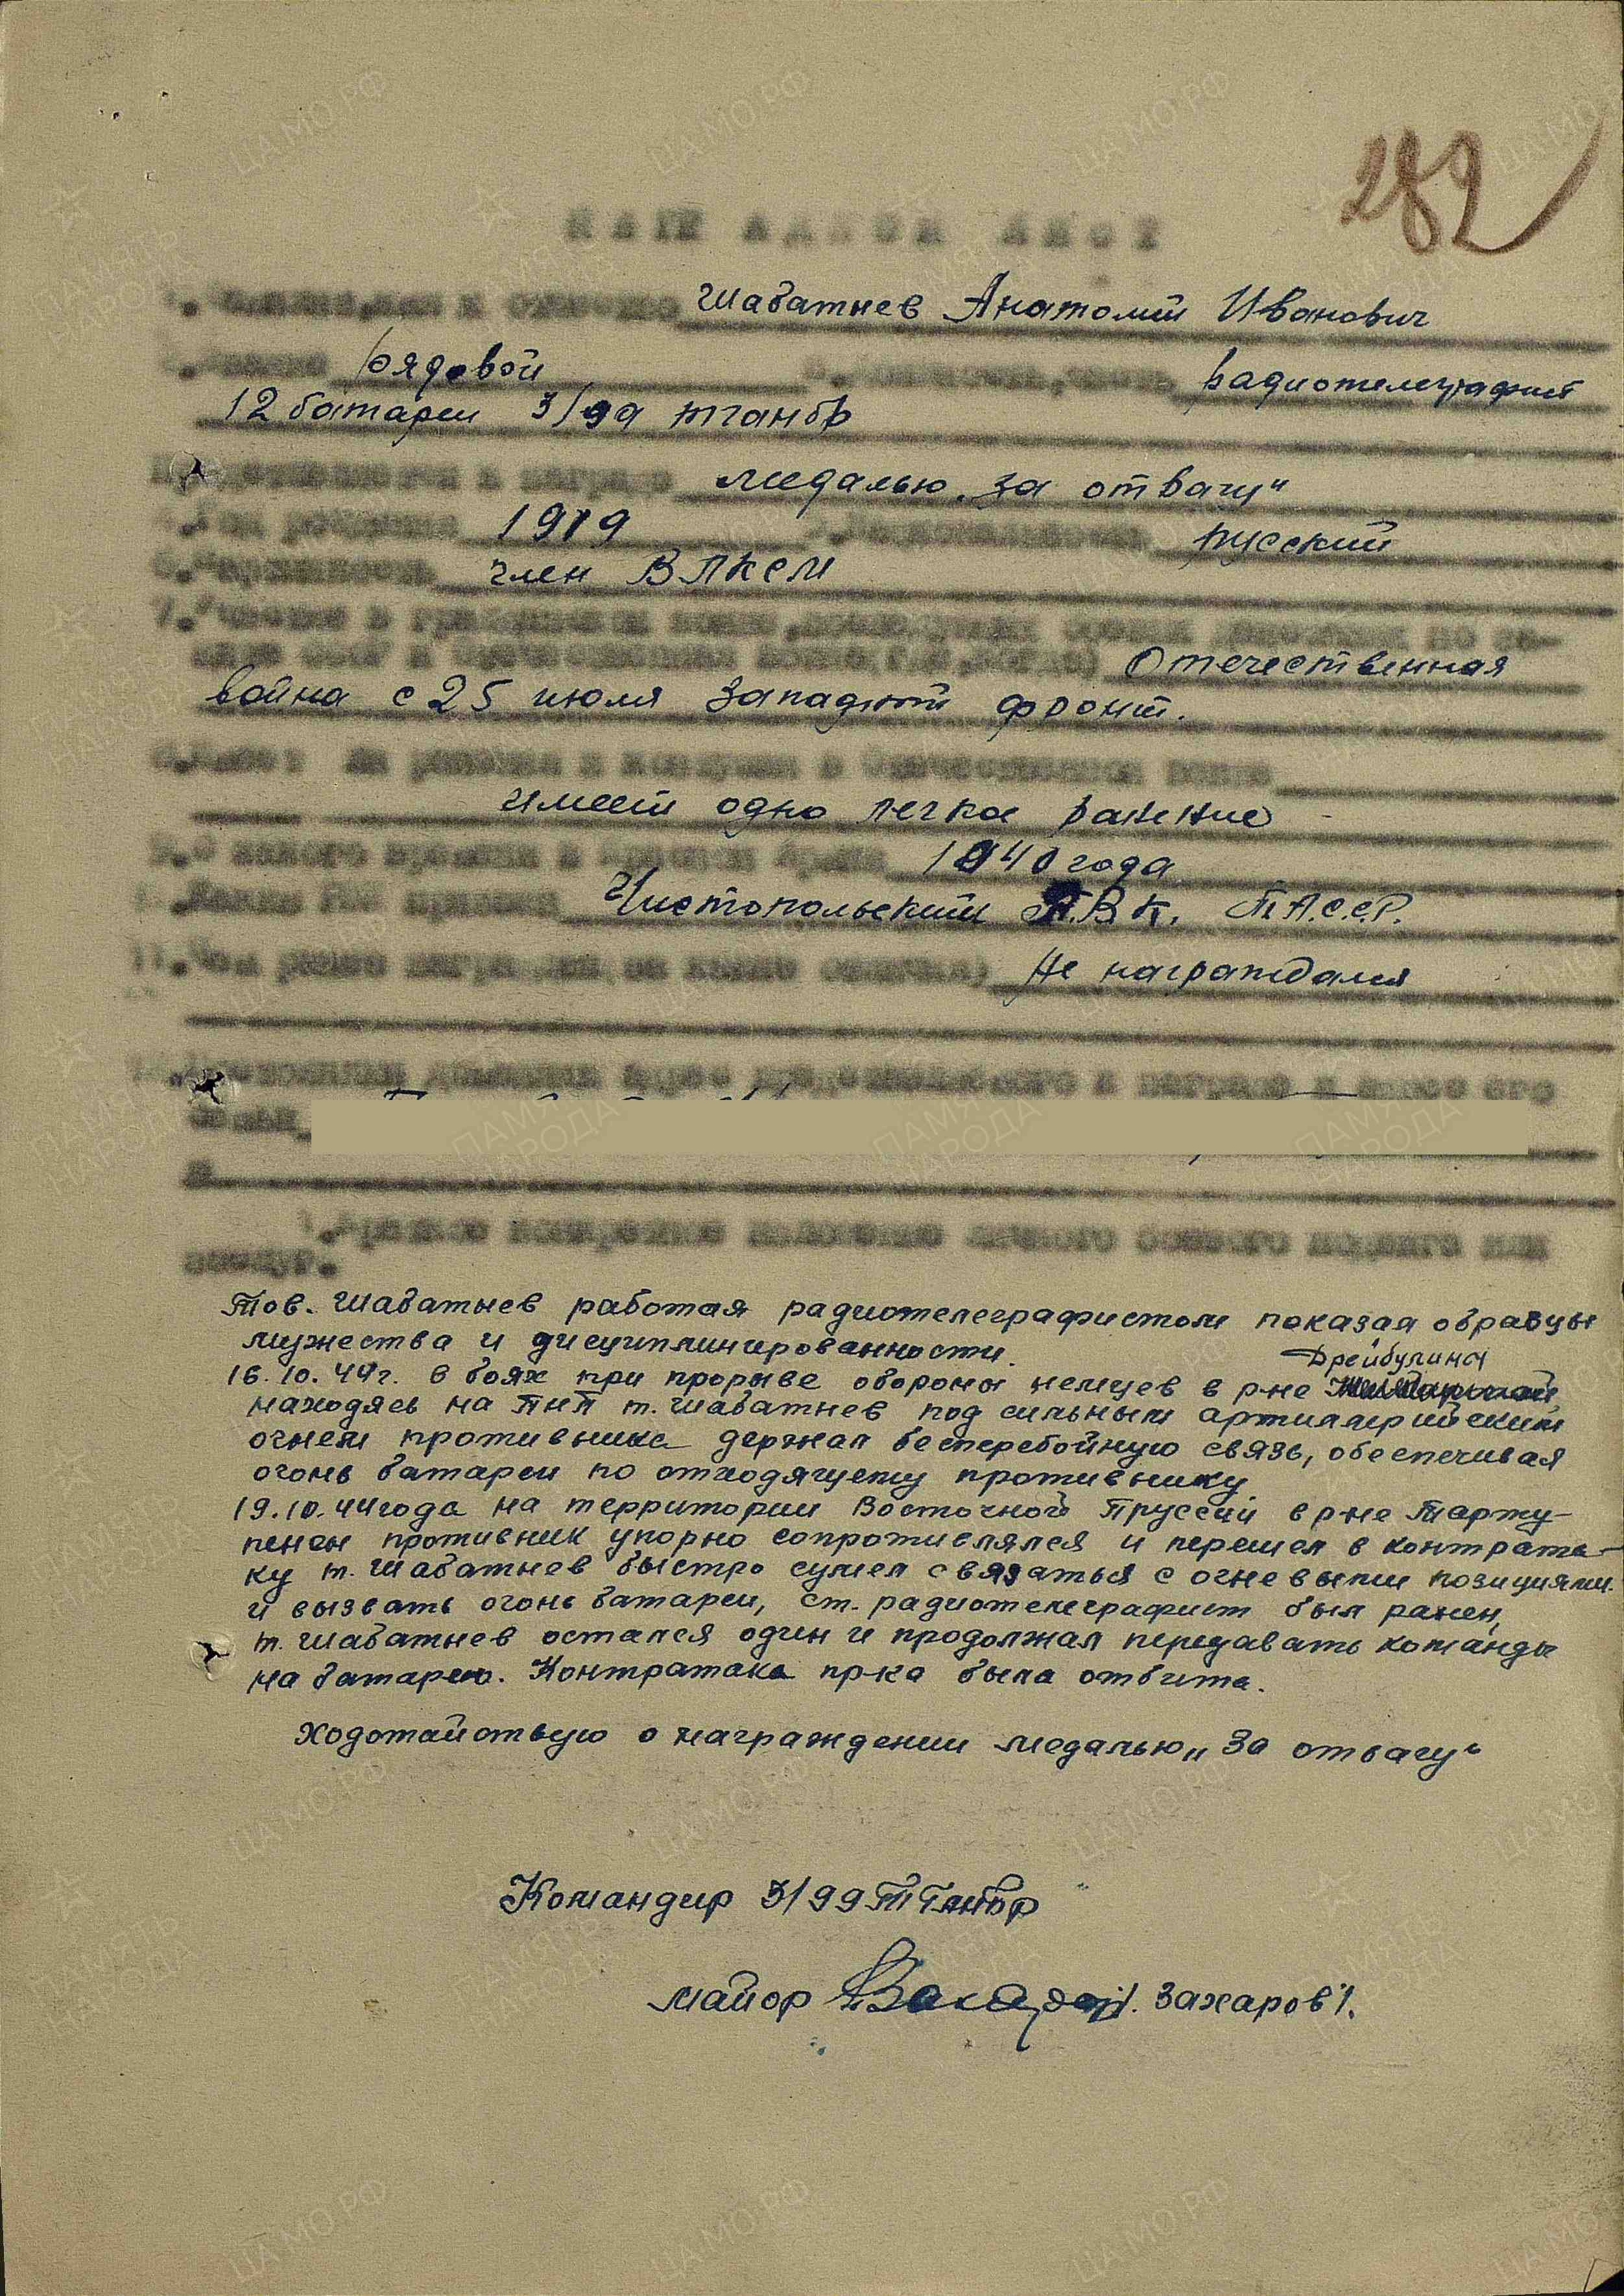 282
НАГРАДНОЙ ЛИСТ
1. Фамилия, имя и отчество Шабатнев Анатолий Иванович
2. Звание рядовой 3. Должность, часть радиотелеграфист
12 батареи 3/99 тганбр
Представляется к награде медалью „За отвагу"
4. Год рождения 1919 5. Национальность русский
6. Партийность член ВЛКСМ
7. Участие в гражданской войне, последующих боевых действиях по за-
щите СССР и Отечественной войне Отечественная
война с 25 июля Западный фронт.
8. Имеет ли ранения и контузии в Отечественной войне
имеет одно легкое ранение
9. С какого времени в Красной Армии 1940 года
10. Каким РВК призван Чистопольский Р.В.К. Т.А.С.С.Р.
11. Чем ранее награжден (за какие отличия) Не награждался
12. Постоянный домашний адрес представляемого к награде и адрес его
семьи
1. Краткое конкретное изложение личного боевого подвига или
заслуг.
Тов. Шабатнев работая радиотелеграфистом показал образцы
мужества и дисциплинированности.
Дрейбулины
16.10.44г. в боях при прорыве обороны немцев в р-не
находясь на ПНП т. Шабатнев под сильным артиллерийским
огнем противника держал бесперебойную связь, обеспечивая
огонь батареи по отходящему противнику.
19.10.44 года на территории Восточной Пруссии в р-не Тарпу-
пенен противник упорно сопротивлялся и перешел в контрата-
ку т. Шабатнев быстро сумел связаться с огневыми позициями
и вызвать огонь батареи, ст. радиотелеграфист был ранен,
т. Шабатнев остался один и продолжал передавать команды
на батарею. Контратака пр-ка была отбита.
Ходотайствую о награждении медалью „За отвагу"
Командир 3/99 ТГАНБР
майор /. Захаров /.
ЦАМО РФ
ПАМЯТЬ НАРОДА